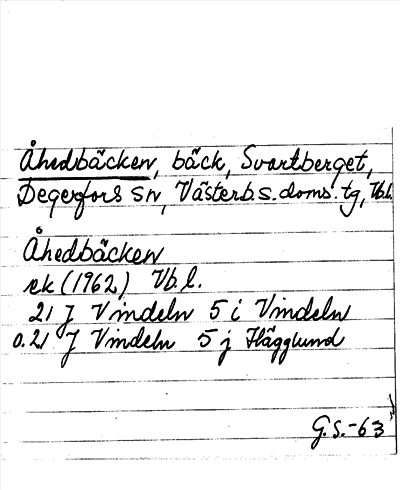 Åhedbäcken, bäck, Svartberget,
Degerfors sn, Västerb.s.doms.tg, Vb.l.
Åhedbäcken
ek (1962) Vb.l.
21 J Vindeln 5 i Vindeln
o. 21 J Vindeln 5 j Hägglund
G.S.-63